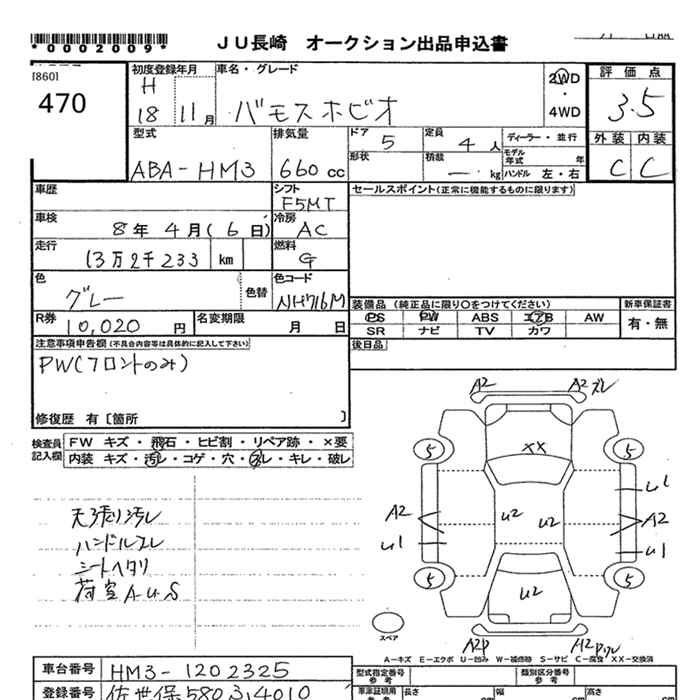 *0002009*
JU長崎 オークション出品申込書
[860]
470
初度登録年月
H
18 11月
車名・グレード
バモスホビオ
2WD
・
4WD
評価点
3.5
型式
ABA-HM3
排気量
660 cc
ドア 5
定員 4人
形状
積載 — kg
ディーラー・並行
モデル年式 年
ハンドル 左・右
外装 内装
C C
車歴
シフト
F5MT
セールスポイント(正常に機能するものに限ります)
車検
8年 4月(6日)
冷房
AC
走行
13万2千233 km
燃料
G
色
グレー
色替
色コード
NH716M
R券
10,020 円
名変期限
月 日
装備品 (純正品に限り○をつけてください)
新車保証書
PS PW ABS エアB AW
SR ナビ TV カワ
有・無
注意事項申告欄(不具合内容等は具体的に記入して下さい)
後日品
PW(フロントのみ)
修復歴 有[箇所 ]
検査員記入欄
FW キズ・飛石・ヒビ割・リペア跡・×要
内装 キズ・汚レ・コゲ・穴・スレ・キレ・破レ
天張り汚レ
ハンドルスレ
シートヘタリ
荷室A・U・S
A2 A2ズレ
XX
5 5
U1
A2 U2 U2 A2
U1 U1
5 5
U2
スペア
A2P
A-キズ E-エクボ U-凹み W-補修跡 S-サビ C-腐食 XX-交換済
車台番号 HM3-1202325
登録番号 佐世保580 う4010
型式指定番号
参考
類別区分番号
参考
車車証明用
長さ cm
幅 cm
高さ cm